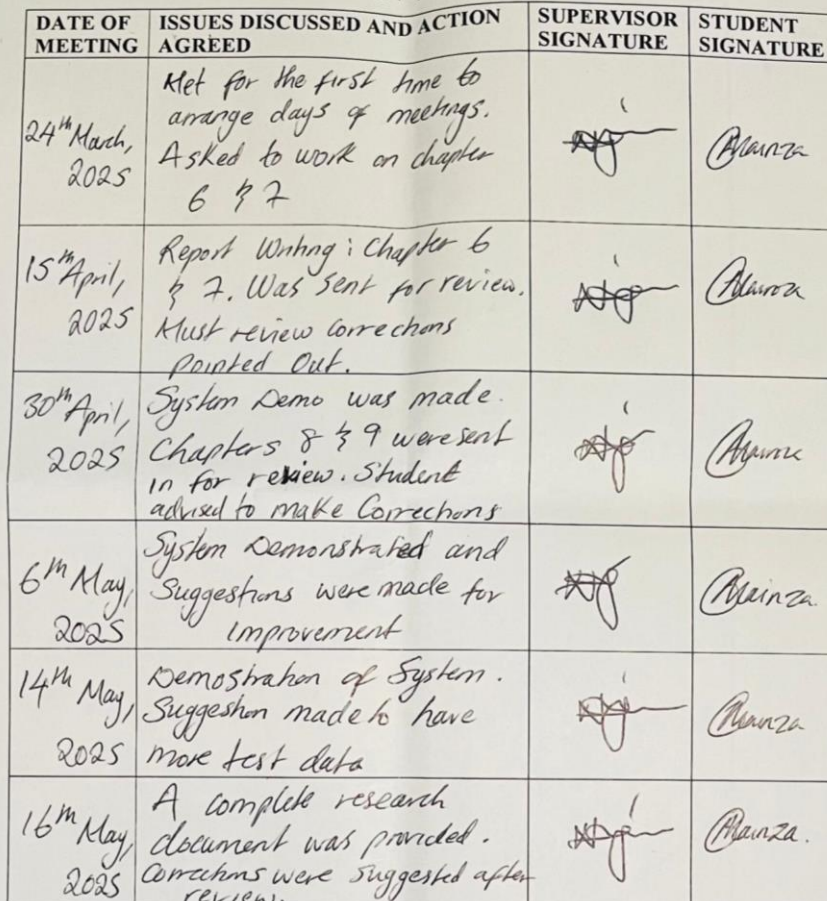 DATE OF MEETING
ISSUES DISCUSSED AND ACTION AGREED
SUPERVISOR SIGNATURE
STUDENT SIGNATURE
24th March, 2025
Met for the first time to
arrange days of meetings.
Asked to work on chapter
6 & 7
Mainza
15th April, 2025
Report Writing : Chapter 6
& 7. Was sent for review.
Must review corrections
pointed Out.
30th April, 2025
System Demo was made.
Chapters 8 & 9 were sent
in for review. Student
advised to make Corrections
6th May, 2025
System Demonstrated and
Suggestions were made for
improvement
Mainza.
14th May, 2025
Demostration of System.
Suggestion made to have
more test data
Mainza
16th May, 2025
A complete research
document was provided.
Corrections were suggested after
review
Mainza.